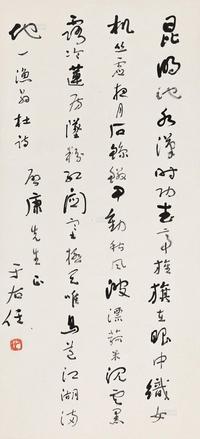 昆明池水漢時功武帝旌旗在眼中織女
机絲虛夜月石鯨鱗甲動秋風波漂菰米沈雲黑
露冷蓮房墜粉紅關塞極天唯鳥道江湖滿
地一漁翁杜詩
康先生正
于右任